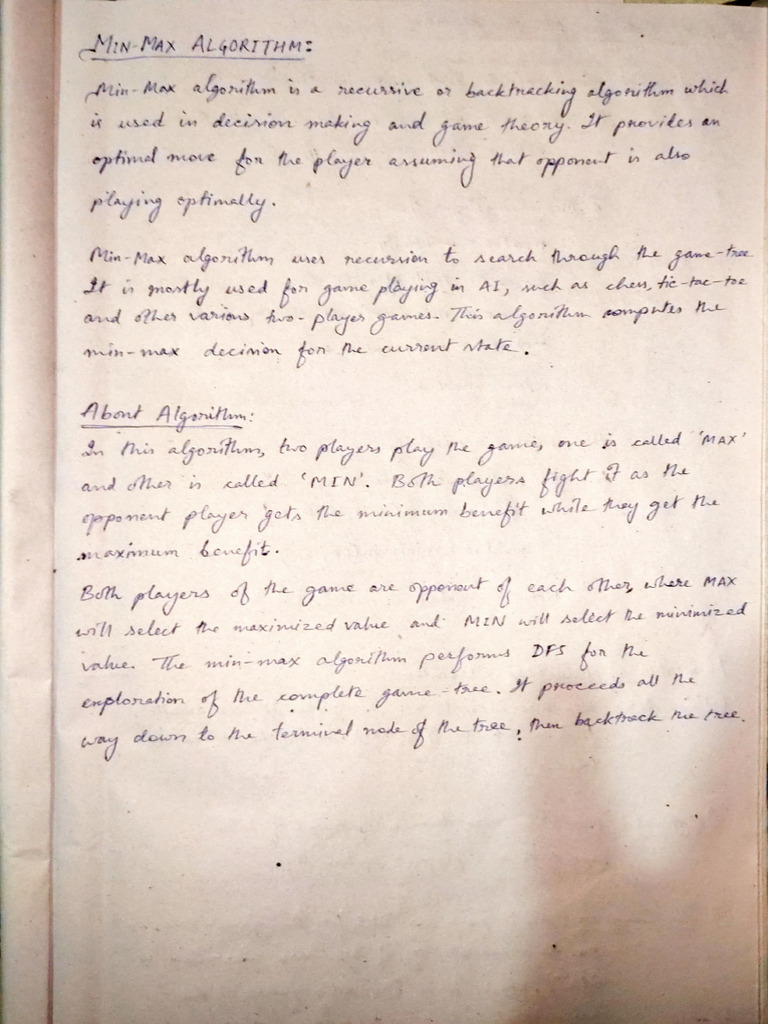 MIN-MAX ALGORITHM:
Min-Max algorithm is a recursive or backtracking algorithm which
is used in decision making and game theory. It provides an
optimal move for the player assuming that opponent is also
playing optimally.
Min-Max algorithm uses recursion to search through the game-tree
It is mostly used for game playing in AI, such as chess, tic-tac-toe
and other various two-player games. This algorithm computes the
min-max decision for the current state.
About Algorithm:
In this algorithm, two players play the game, one is called 'MAX'
and other is called 'MIN'. Both players fight it as the
opponent player gets the minimum benefit while they get the
maximum benefit.
Both players of the game are opponent of each other, where MAX
will select the maximized value and MIN will select the minimized
value. The min-max algorithm performs DFS for the
exploration of the complete game-tree. It proceeds all the
way down to the terminal node of the tree, then backtrack the tree.